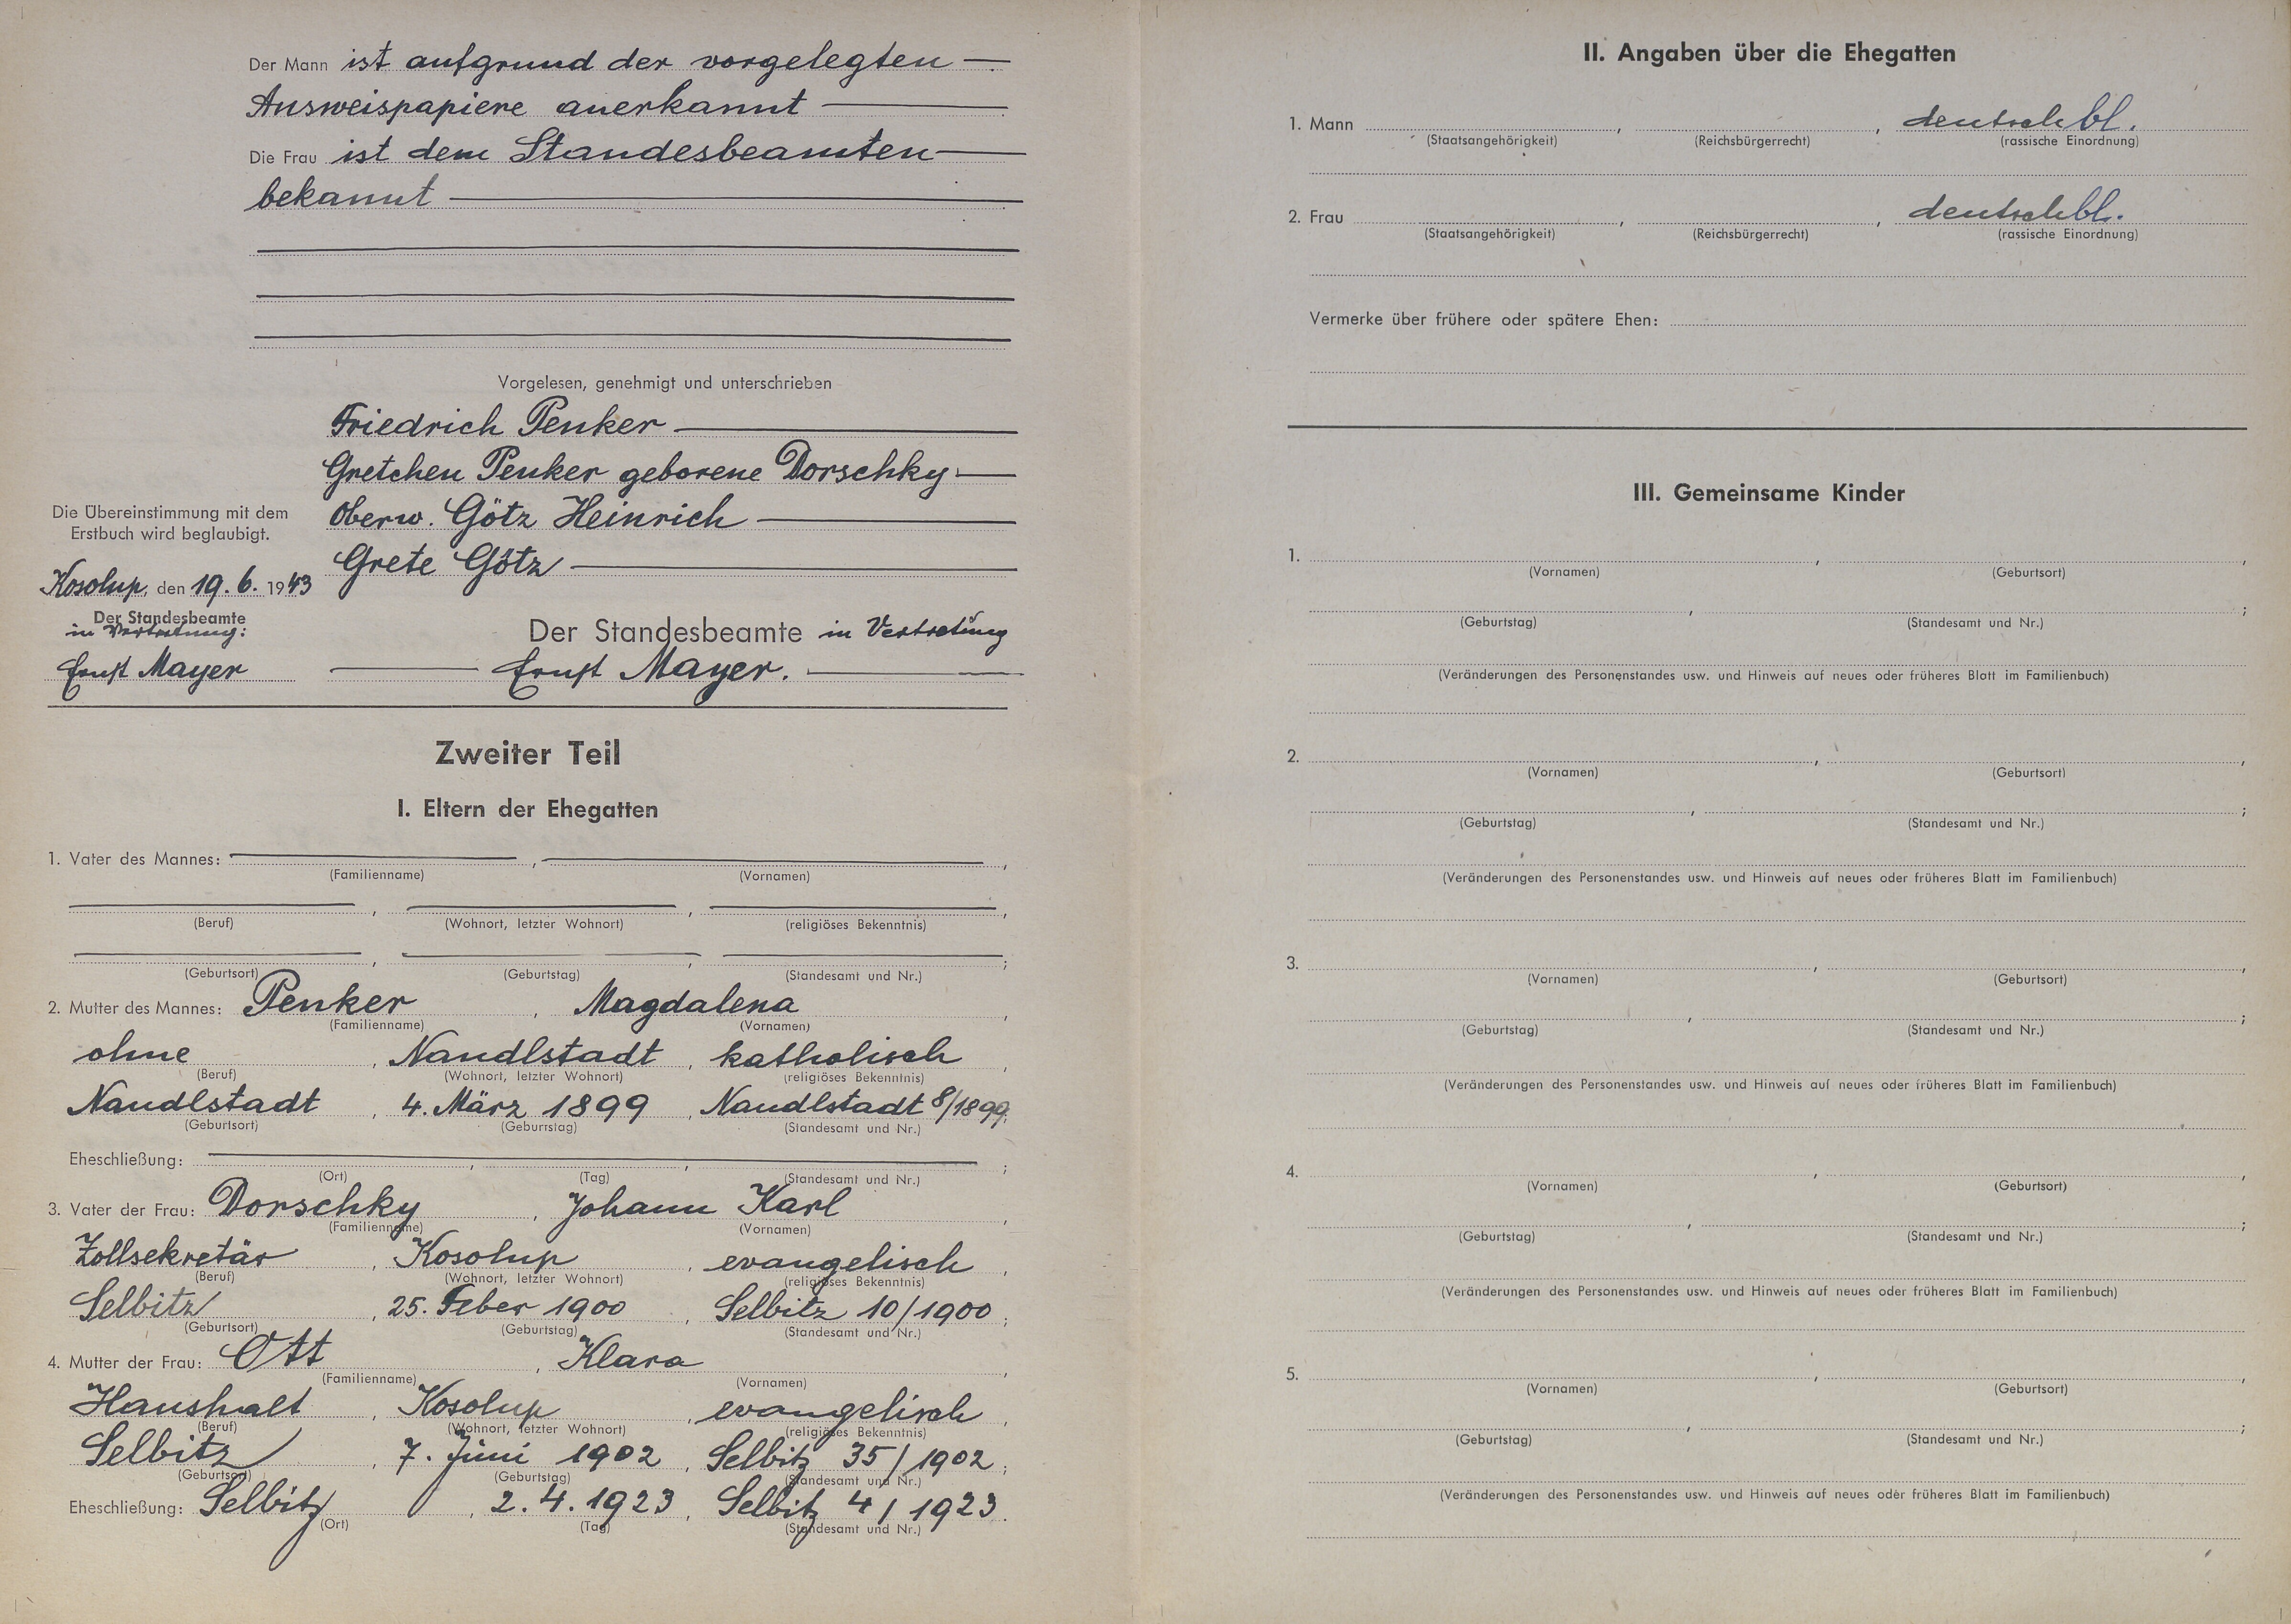 Der Mann ist aufgrund der vorgelegten
Ausweispapiere anerkannt
Die Frau ist dem Standesbeamten
bekannt
Vorgelesen, genehmigt und unterschrieben
Friedrich Penker
Gretchen Penker geborene Dorschky
Oberw. Götz Heinrich
Grete Götz
Die Übereinstimmung mit dem
Erstbuch wird beglaubigt.
Kosolup, den 19. 6. 1943
Der Standesbeamte
in Vertretung:
Ernst Mayer
Der Standesbeamte in Vertretung
Ernst Mayer.
Zweiter Teil
I. Eltern der Ehegatten
1. Vater des Mannes: , ,
(Familienname) (Vornamen)
, , ,
(Beruf) (Wohnort, letzter Wohnort) (religiöses Bekenntnis)
, , ;
(Geburtsort) (Geburtstag) (Standesamt und Nr.)
2. Mutter des Mannes: Penker , Magdalena ,
(Familienname) (Vornamen)
ohne , Nandlstadt , katholisch ,
(Beruf) (Wohnort, letzter Wohnort) (religiöses Bekenntnis)
Nandlstadt , 4. März 1899 , Nandlstadt 8/1899.
(Geburtsort) (Geburtstag) (Standesamt und Nr.)
Eheschließung: , , ;
(Ort) (Tag) (Standesamt und Nr.)
3. Vater der Frau: Dorschky , Johann Karl ,
(Familienname) (Vornamen)
Zollsekretär , Kosolup , evangelisch ,
(Beruf) (Wohnort, letzter Wohnort) (religiöses Bekenntnis)
Selbitz , 25. Feber 1900 , Selbitz 10/1900 ;
(Geburtsort) (Geburtstag) (Standesamt und Nr.)
4. Mutter der Frau: Ott , Klara ,
(Familienname) (Vornamen)
Haushalt , Kosolup , evangelisch ,
(Beruf) (Wohnort, letzter Wohnort) (religiöses Bekenntnis)
Selbitz , 7. Juni 1902 , Selbitz 35/1902 ;
(Geburtsort) (Geburtstag) (Standesamt und Nr.)
Eheschließung: Selbitz , 2. 4. 1923 , Selbitz 4/1923.
(Ort) (Tag) (Standesamt und Nr.)
II. Angaben über die Ehegatten
1. Mann , , deutschbl.
(Staatsangehörigkeit) (Reichsbürgerrecht) (rassische Einordnung)
2. Frau , , deutschbl.
(Staatsangehörigkeit) (Reichsbürgerrecht) (rassische Einordnung)
Vermerke über frühere oder spätere Ehen:
III. Gemeinsame Kinder
1. , ,
(Vornamen) (Geburtsort)
, ;
(Geburtstag) (Standesamt und Nr.)
(Veränderungen des Personenstandes usw. und Hinweis auf neues oder früheres Blatt im Familienbuch)
2. , ,
(Vornamen) (Geburtsort)
, ;
(Geburtstag) (Standesamt und Nr.)
(Veränderungen des Personenstandes usw. und Hinweis auf neues oder früheres Blatt im Familienbuch)
3. , ,
(Vornamen) (Geburtsort)
, ;
(Geburtstag) (Standesamt und Nr.)
(Veränderungen des Personenstandes usw. und Hinweis auf neues oder früheres Blatt im Familienbuch)
4. , ,
(Vornamen) (Geburtsort)
, ;
(Geburtstag) (Standesamt und Nr.)
(Veränderungen des Personenstandes usw. und Hinweis auf neues oder früheres Blatt im Familienbuch)
5. , ,
(Vornamen) (Geburtsort)
, ;
(Geburtstag) (Standesamt und Nr.)
(Veränderungen des Personenstandes usw. und Hinweis auf neues oder früheres Blatt im Familienbuch)